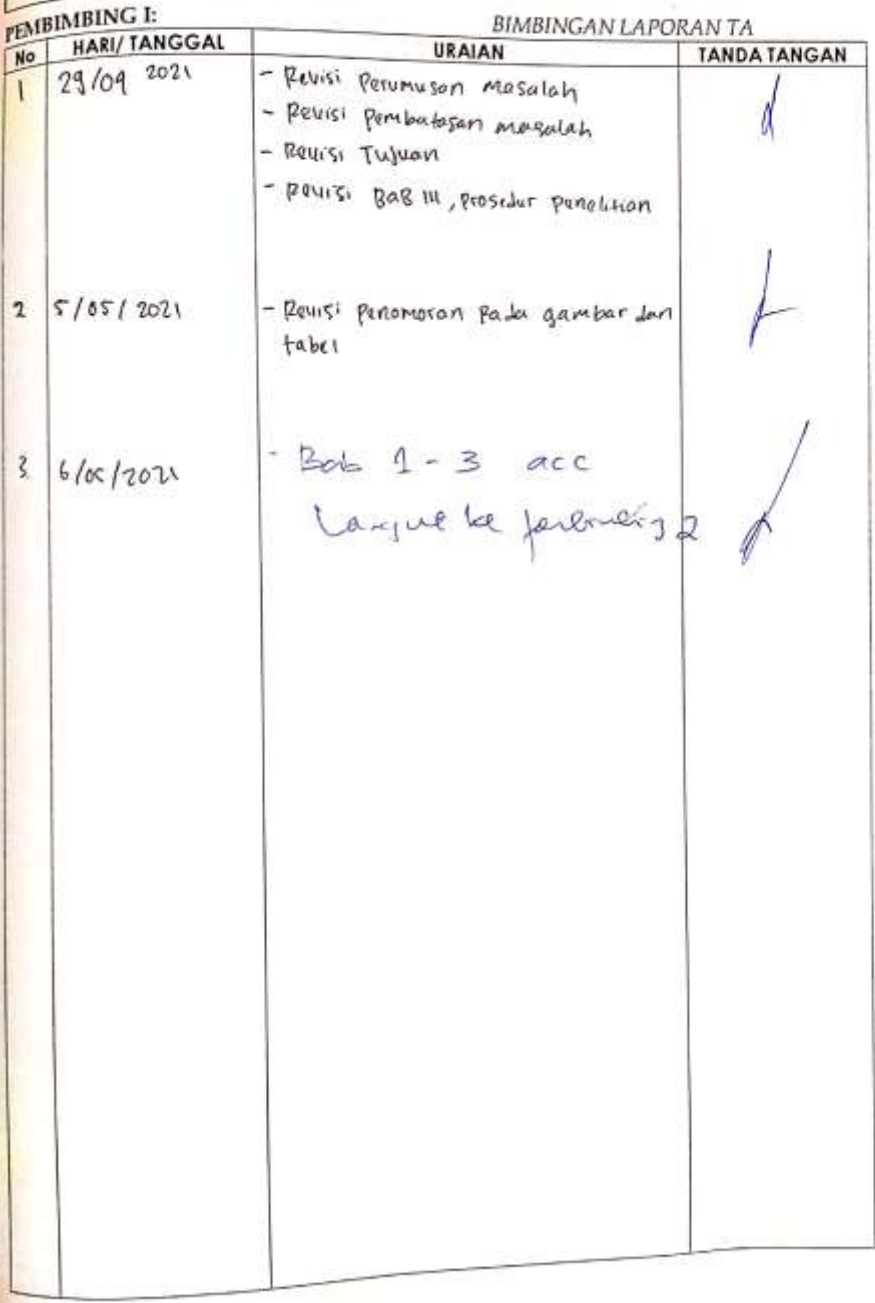 PEMBIMBING I:
BIMBINGAN LAPORAN TA
No HARI/ TANGGAL URAIAN TANDA TANGAN
1 29/04 2021 - Revisi Perumusan masalah
- Revisi Pembatasan masalah
- Revisi Tujuan
- Revisi BAB III, Prosedur Penelitian
2 5/05/2021 - Revisi Penomoran Pada gambar dan
tabel
3. 6/05/2021 - Bab 1 - 3 acc
Lanjut ke pembimbing 2